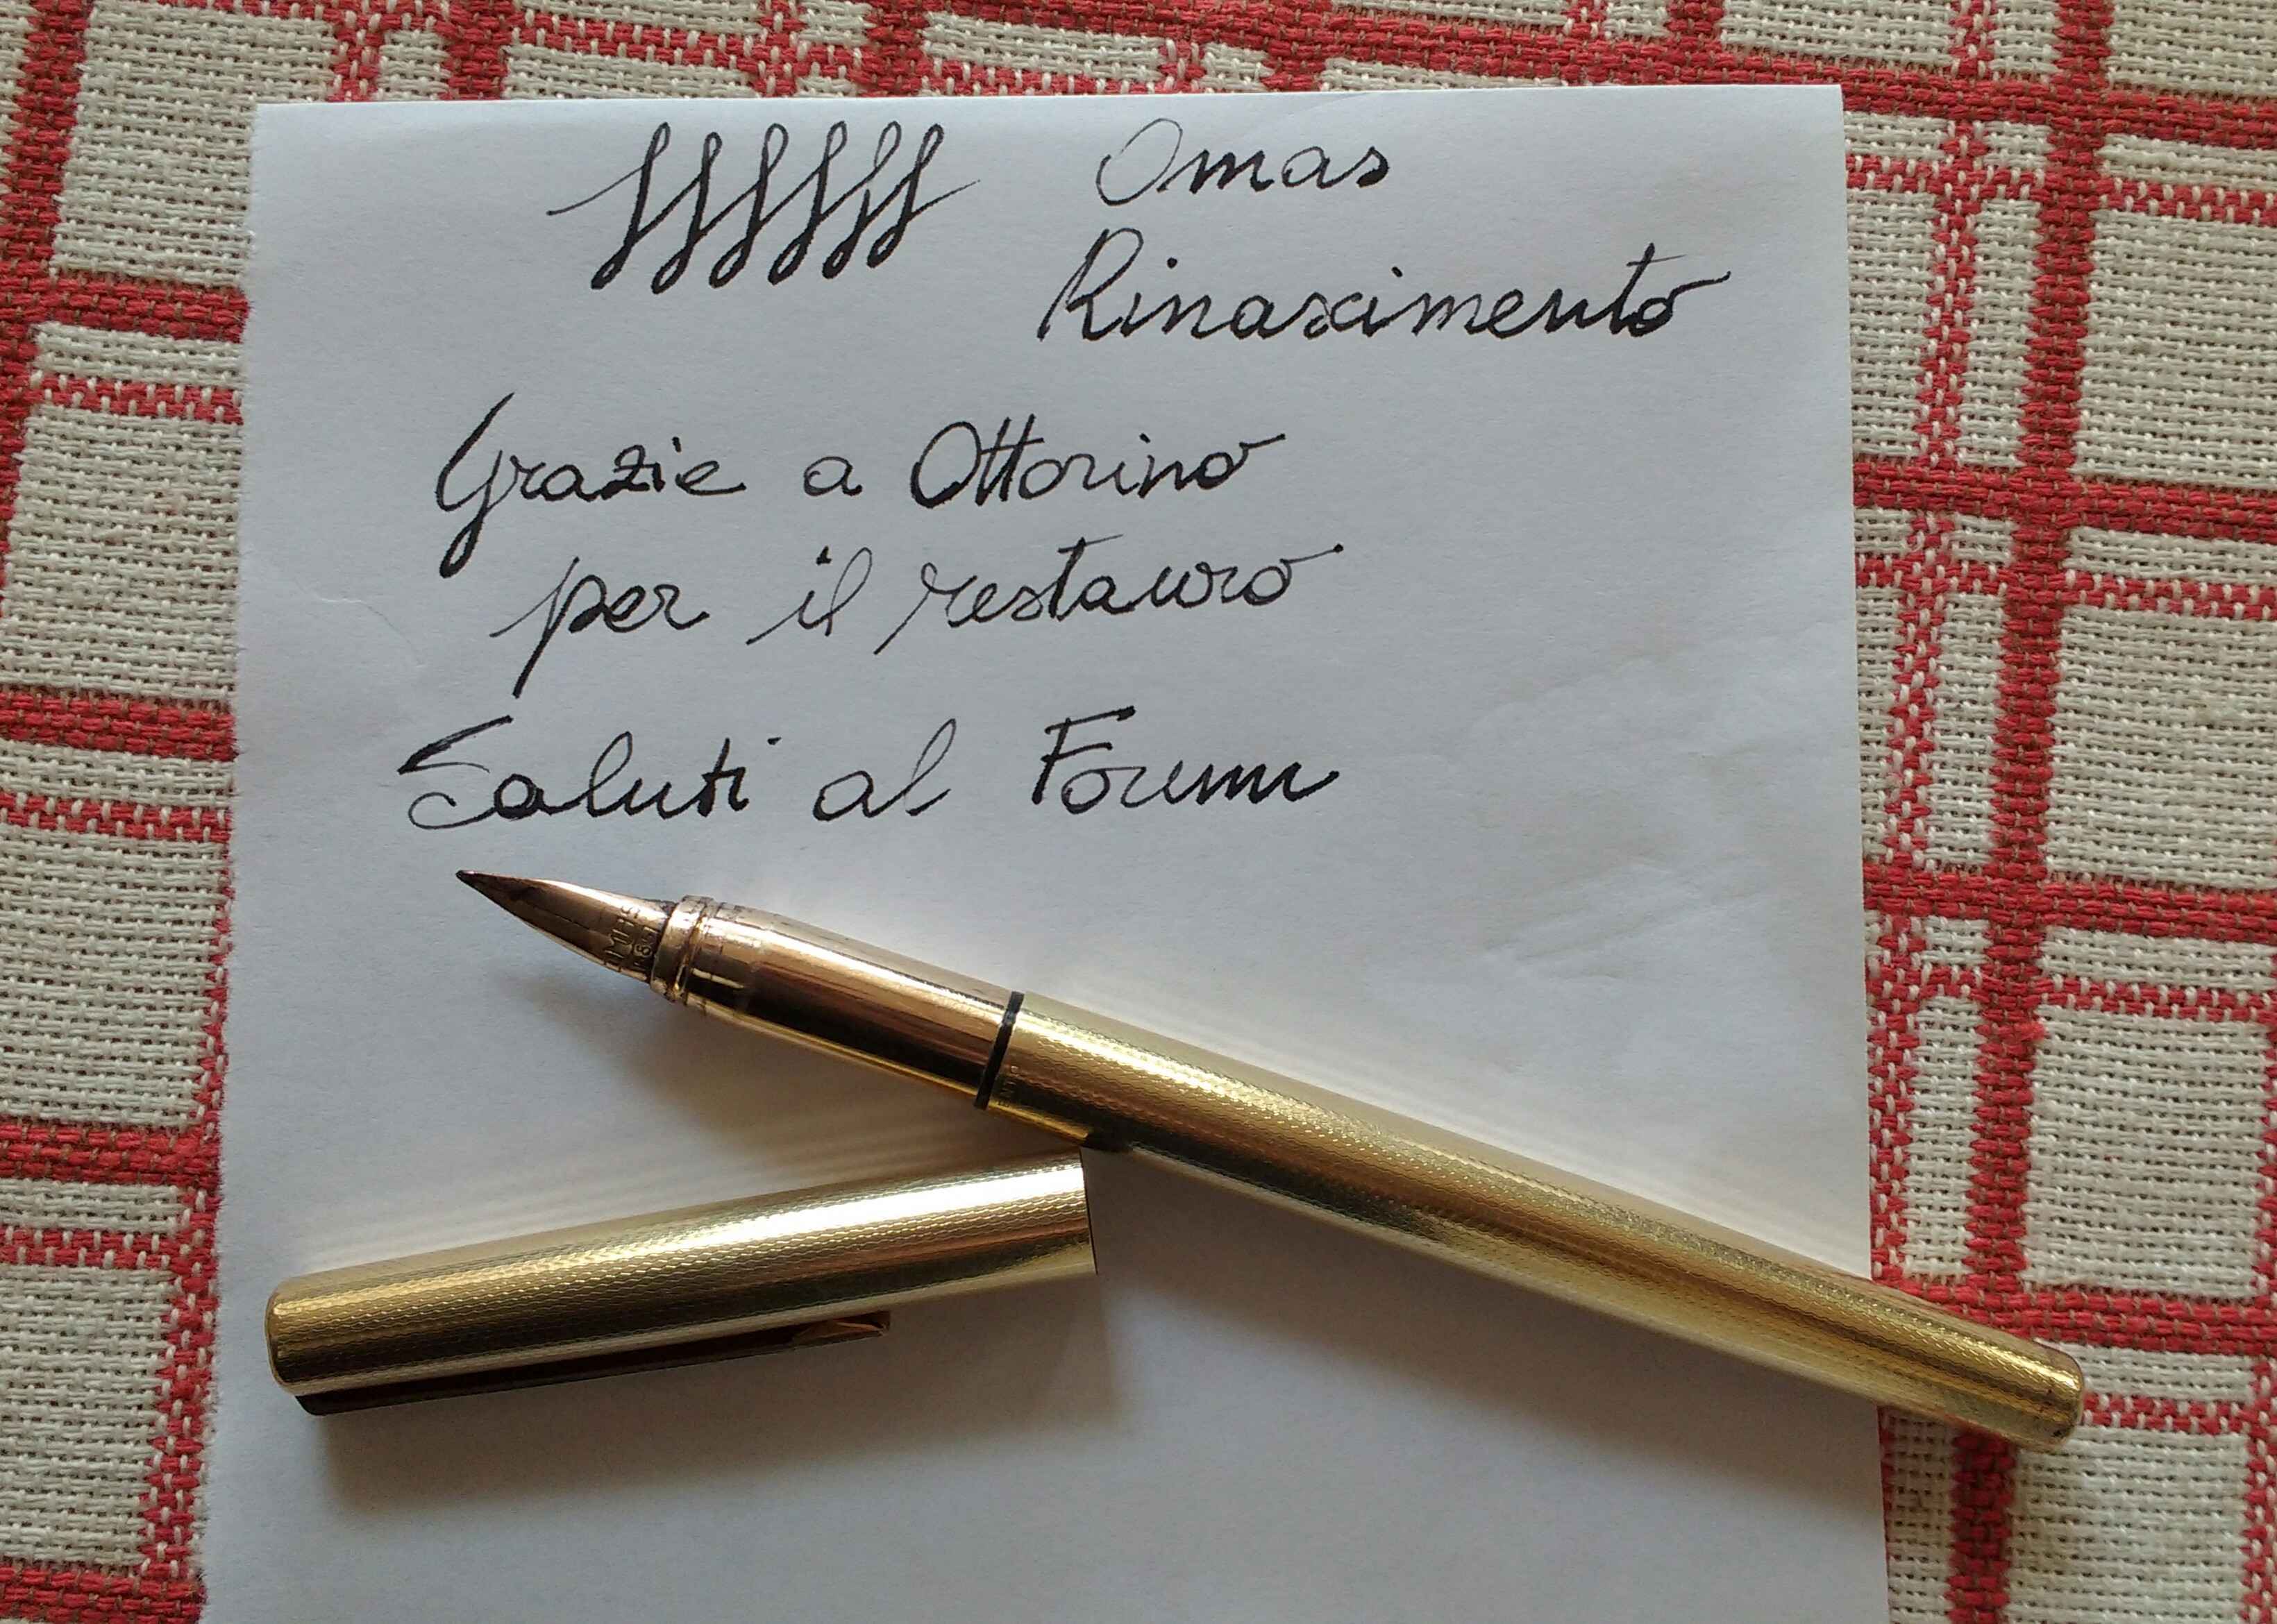 Omas
Rinascimento
Grazie a Ottorino
per il restauro
Saluti al Forum